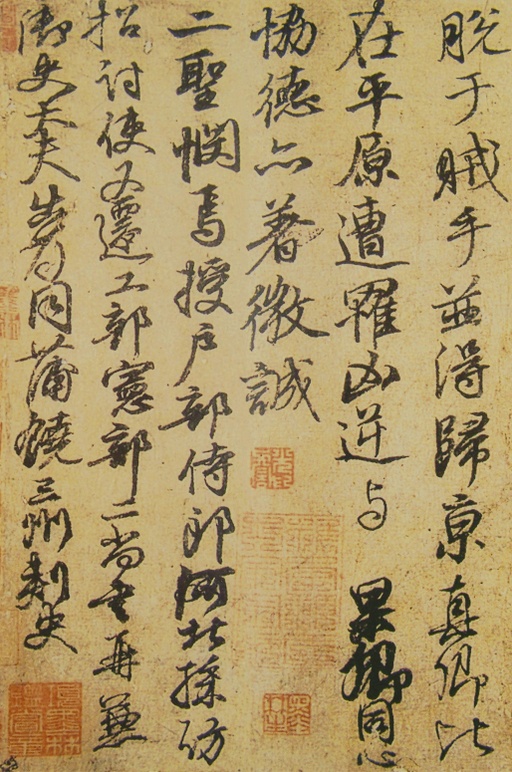 脱于賊手並得歸京真卿比
在平原遭羅凶逆与杲卿同心
協德亦著微誠
二聖憫焉授户部侍郎河北採访
招討使又遷工部憲部二尚書再兼
御史大夫出為同蒲饒三州刺史